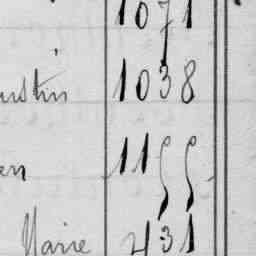 1071
ustin 1038
en 1155
Marie 431